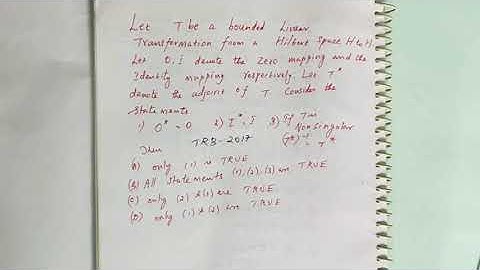 Let T be a bounded Linear
Transformation from a Hilbert Space H to H.
Let O, I denote the Zero mapping and the
Identity mapping respectively. Let T*
denote the adjoint of T. Consider the
Statements
1) O* = O 2) I* = I 3) If T is
Nonsingular
Then TRB-2017 (T*)⁻¹ = T*
(A) only (1) is TRUE
(B) All Statements (1), (2), (3) are TRUE
(C) only (2) & (3) are TRUE
(D) only (1) & (2) are TRUE